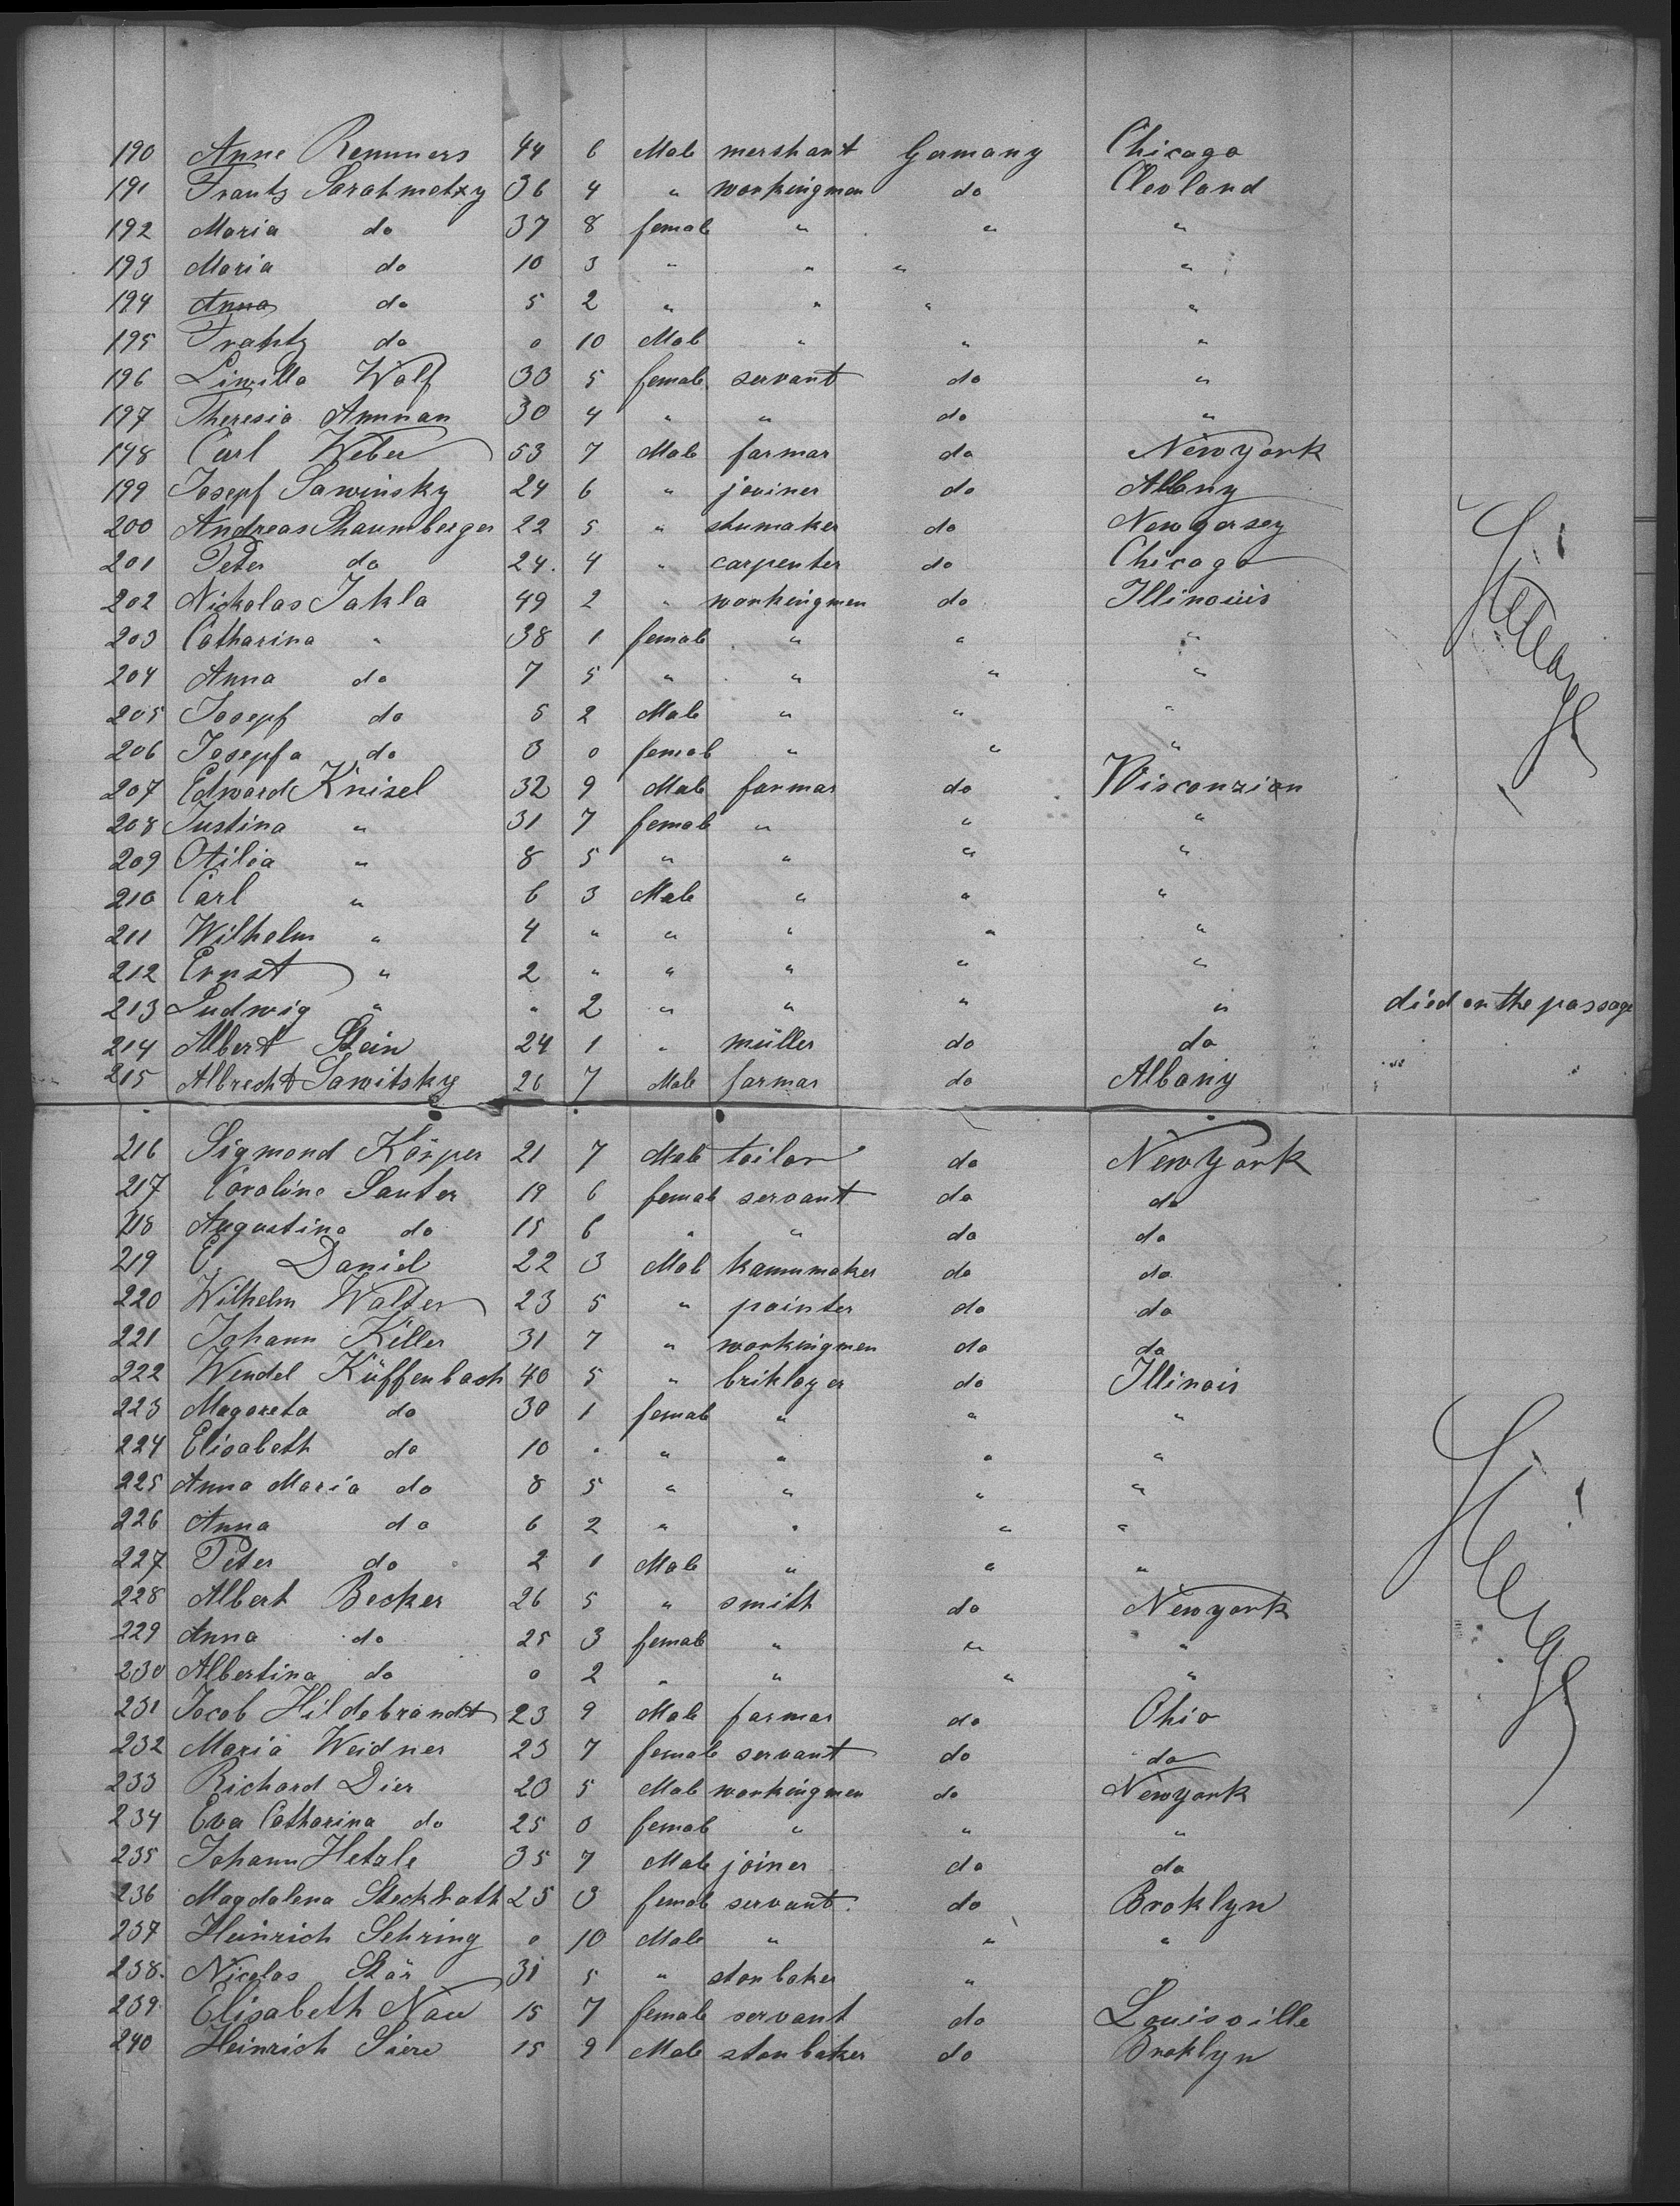 190 Anne Remmers 44 6 Male mershant Germany Chicago
191 Frantz Sarahmetzy 36 4 " workingmen do Clevland
192 Maria do 37 8 female " " "
193 Maria do 10 3 " " " "
194 Anna do 5 2 " " " "
195 Frantz do 0 10 Male " " "
196 Limilla Wolf 30 5 female servant do "
197 Theresia Amman 30 4 " " do "
198 Carl Weber 53 7 Male farmar do New York
199 Josepf Sawinsky 24 6 " joviner do Albny
200 Andreas Shaumberger 22 5 " shumaker do New gersey
201 Peter do 24. 4 " carpenter do Chicago
202 Nickolas Jakla 49 2 " workingmen do Illinouis
203 Catharina " 38 1 female " " "
204 Anna do 7 5 " " " "
205 Josepf do 5 2 Male " " "
206 Josepfa do 3 0 female " " "
207 Edward Knisel 32 9 Male farmar do Wisconzion
208 Justina " 31 7 female " " "
209 Otilia " 8 5 " " " "
210 Carl " 6 3 Male " " "
211 Wilhelm " 4 " " " " "
212 Ernst " 2 " " " " "
213 Ludwig " " 2 " " " " died on the passage
214 Albert Stein 24 1 " müller do do
215 Albrecht Sawitsky 26 7 Male farmar do Albany
216 Sigmond Körper 21 7 Male tailor do New York
217 Caroline Sauter 19 6 female servant do do
218 Augustina do 15 6 " " do do
219 E. Daniel 22 3 Male kammmaker do do
220 Wilhelm Walter 23 5 " painter do do
221 Johann Killer 31 7 " workingmen do do
222 Wendel Küffenbach 40 5 " briklayer do Illinois
223 Magareta do 30 1 female " " "
224 Elisabeth do 10 " " " " "
225 Anna Maria do 8 5 " " " "
226 Anna do 6 2 " " " "
227 Peter do 2 1 Male " " "
228 Albert Becker 26 5 " smith do New york
229 Anna do 25 3 female " " "
230 Albertina do 0 2 " " " "
231 Jacob Hildebrandt 23 9 Male farmar do Ohio
232 Maria Weidner 23 7 female servant do do
233 Richard Dier 20 5 Male workingmen do New york
234 Eva Catharina do 25 0 female " " "
235 Johann Hetzle 35 7 Male joiner do do
236 Magdalena Steckrath 25 3 female servant do Broklyn
237 Heinrich Sehring 0 10 Male " " "
238. Nicolas Stär 31 5 " stonbaker "
239. Elisabeth Nau 15 7 female servant do Louisville
240 Heinrich Siere 15 9 Male stonbaker do Broklyn